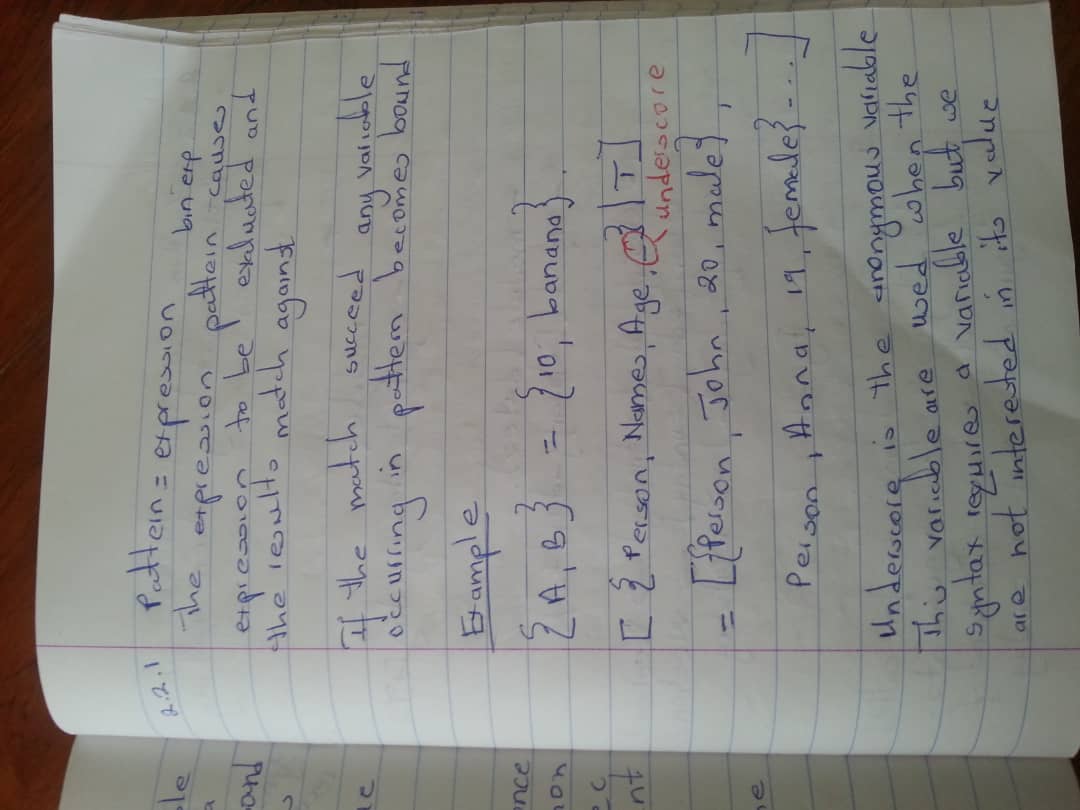 2.2.1 Pattern = expression
bin exp
The expression pattern causes
expression to be evaluated and
the results match against
If the match succeed any variable
occurring in pattern becomes bound
Example
{A, B} = {10, banana}.
[ {Person, Names, Age, _} | T]
underscore
= [{Person, John, 20, male},
Person, Anna, 19, female} - ...]
Underscore is the anonymous variable
This variable are used when the
syntax requires a variable but we
are not interested in its value
le
a
ound
ue
nce
non
ec
nt
e